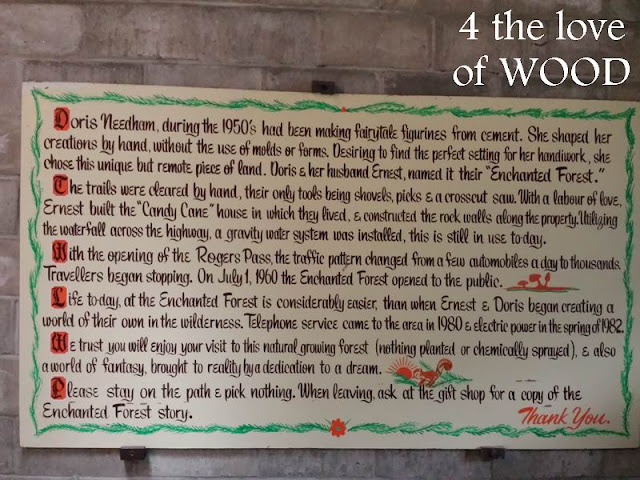 4 the love
of WOOD
Doris Needham, during the 1950's had been making fairytale figurines from cement. She shaped her
creations by hand, without the use of molds or forms. Desiring to find the perfect setting for her handiwork, she
chose this unique but remote piece of land. Doris & her husband Ernest, named it their "Enchanted Forest."
The trails were cleared by hand, their only tools being shovels, picks & a crosscut saw. With a labour of love,
Ernest built the "Candy Cane" house in which they lived, & constructed the rock walls along the property. Utilizing
the waterfall across the highway, a gravity water system was installed, this is still in use to-day.
With the opening of the Rogers Pass, the traffic pattern changed from a few automobiles a day to thousands.
Travellers began stopping. On July 1, 1960 the Enchanted Forest opened to the public.
Life to-day, at the Enchanted Forest is considerably easier, than when Ernest & Doris began creating a
world of their own in the wilderness. Telephone service came to the area in 1980 & electric power in the spring of 1982.
We trust you will enjoy your visit to this natural growing forest (nothing planted or chemically sprayed), & also
a world of fantasy, brought to reality by a dedication to a dream.
Please stay on the path & pick nothing. When leaving, ask at the gift shop for a copy of the
Enchanted Forest story.
Thank You.